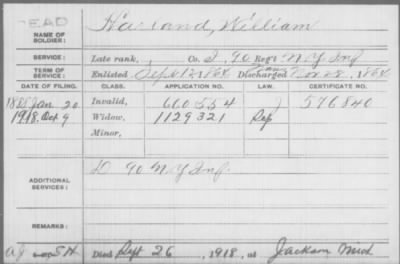 DEAD
NAME OF SOLDIER: Harland, William
SERVICE: Late rank, , Co. I, 90 Reg't N.Y. Inf
TERM OF SERVICE: Enlisted Sept 12 1864 Discharged 1864
DATE OF FILING. CLASS. APPLICATION NO. LAW. CERTIFICATE NO.
1888 Jan. 20 Invalid, 660554 576840
1918. Oct 9 Widow, 1129321
Minor,
ADDITIONAL SERVICES: D 90 N.Y. Inf.
REMARKS:
Died Sept 26, 1918, at Jackson Mich